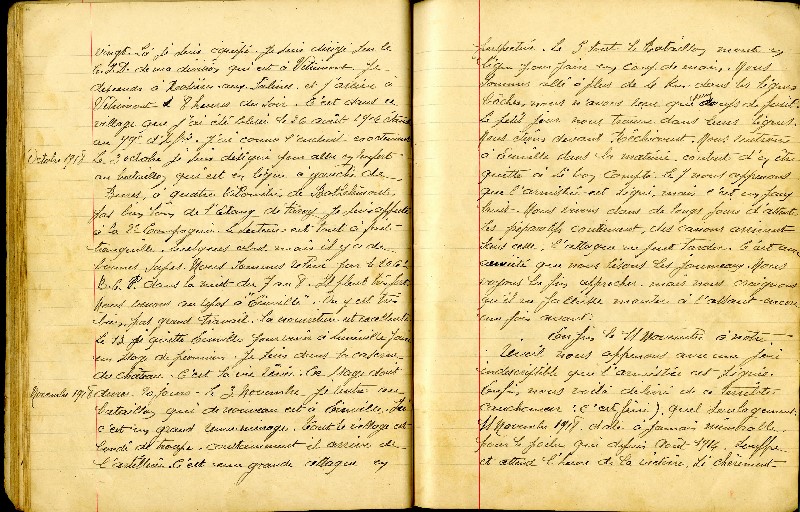 vingt. Là je suis coupé. Je suis dirigé sur le
C.I.D. de ma division qui est à Vitrimont. Je
descends à Rosières aux Salines, et j'arrive à
Vitrimont à 8 heures du soir. C'est dans ce
village que j'ai été blessé le 26 août 1914 étant
au J'ai connu l'endroit exactement
Octobre 1918 Le 2 octobre je suis désigné pour aller en renfort
au bataillon qui est en ligne à gauche de
Bures, à quatre kilomètres de Bathelémont
pas bien loin de l'Etang de Je suis affecté
à la 22e Compagnie. Le secteur est tout à fait
tranquille. mais il y a de
bonnes sapes. Nous sommes relevé par le
R.I. dans la nuit du 7 au 8. Il pleut très fort
Nous venons au repos à "Einville". On y est très
bien, pas grand travail. la nourriture est excellente
Le 13 je quitte Einville pour venir à Lunéville faire
un stage de pionnier. Je suis dans la caserne
du château. C'est la vie Ce stage doit
durer 20 jours.
Novembre 1918 le 3 Novembre je rentre au
bataillon qui de nouveau est à Einville. Ici
c'est un grand remue-ménage. Tout le village est
bondé de troupe. continuement il arrive de
l'artillerie. C'est une grande attaque en
perspective. Le 5 tout le Bataillon monte en
ligne pour faire un coup de main. Nous
sommes allé à plus de 2 km. dans les lignes
boches, nous n'avons reçu que coups de fusil.
Le petit jour nous trouve dans leurs lignes.
Nous étions devant Réchicourt. Nous rentrons
à Einville dans la matinée, content d'en être
quitte à si bon compte. Le 7 nous apprenons
que l'armistice est signé, mais c'est un faux
bruit. Nous vivons dans de longs jours d'attente
les préparatifs continuent, des canons arrivent
sans cesse. L'attaque ne peut tarder. C'est avec
anxiété que nous lisons les journeaux. Nous
voyons la fin approcher mais nous craignons
qu'il ne faille monter à l'assaut encore
une fois avant.
Enfin le 11 Novembre à notre
réveil nous apprenons avec une joie
indescriptible que l'armistice est signée.
Enfin, nous voilà délivré de ce terrible
cauchemar (c'est fini), quel soulagement.
11 Novembre 1918, date à jamais mémorable
pour le poilu qui depuis Août 1914 souffre
et attend l'heure de la victoire, si chèrement